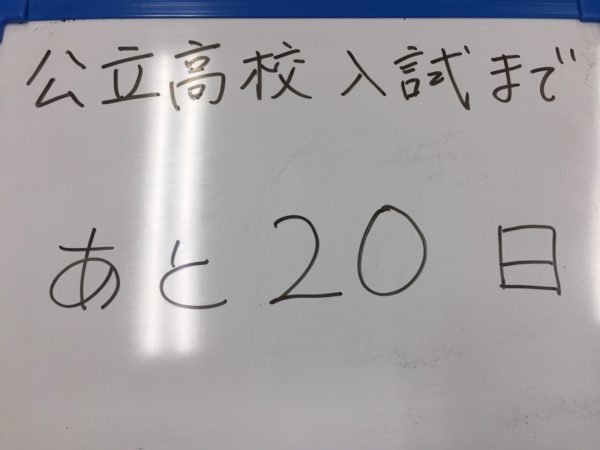 公立高校入試まで
あと20日